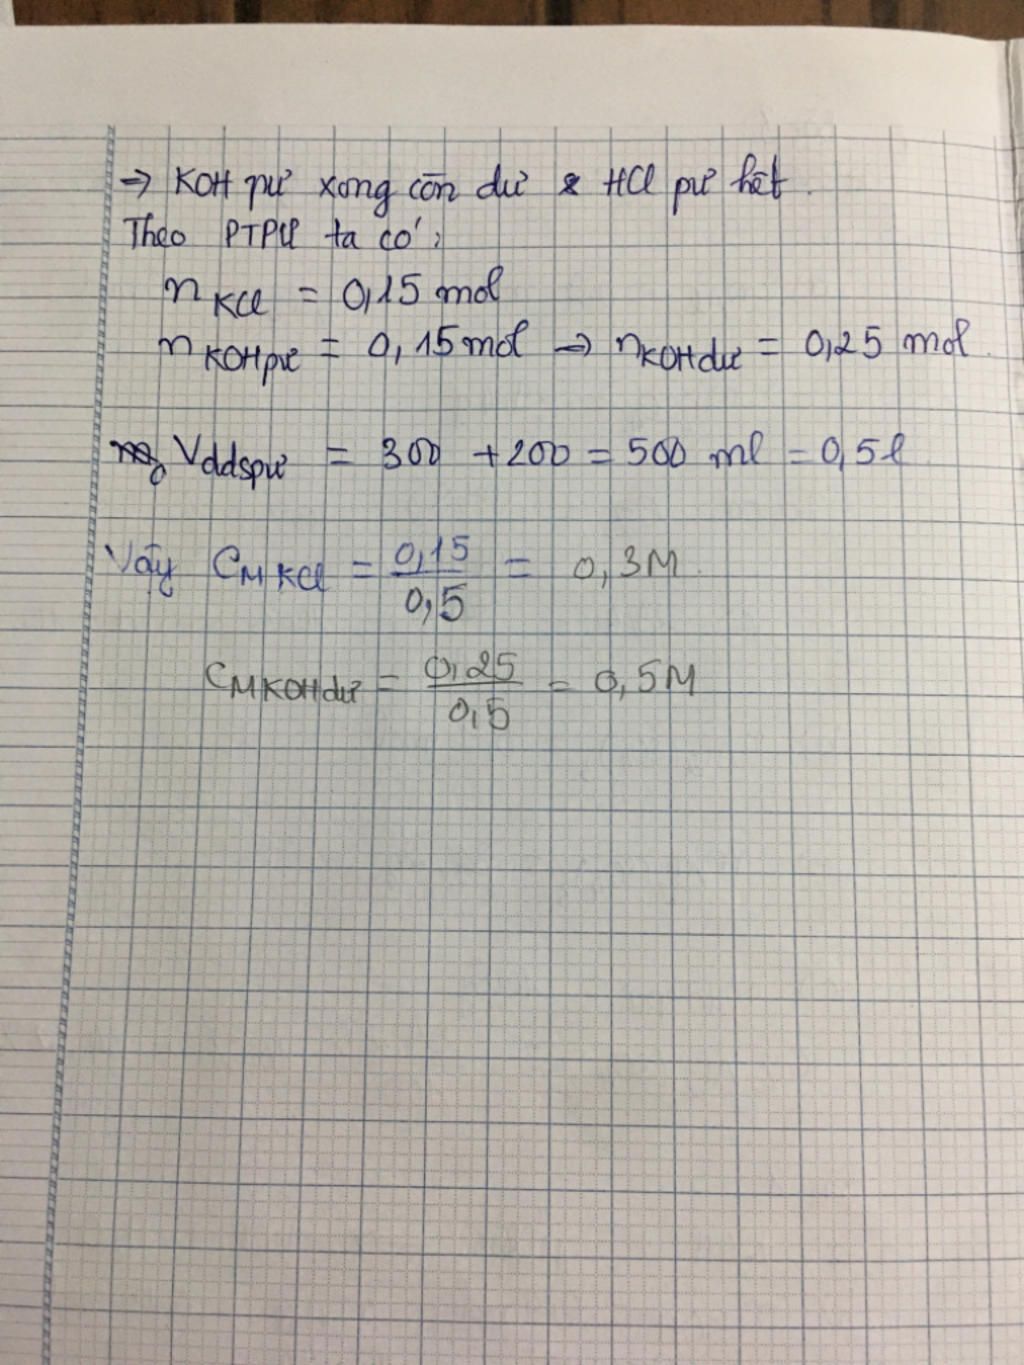 → KOH pư xong còn dư & HCl pư hết.
Theo PTPƯ ta có:
n KCl = 0,15 mol
n KOH pư = 0,15 mol → n KOH dư = 0,25 mol.
V ddspư = 300 + 200 = 500 ml = 0,5 l
Vậy CM KCl = 0,15/0,5 = 0,3M.
CM KOH dư = 0,25/0,5 = 0,5M